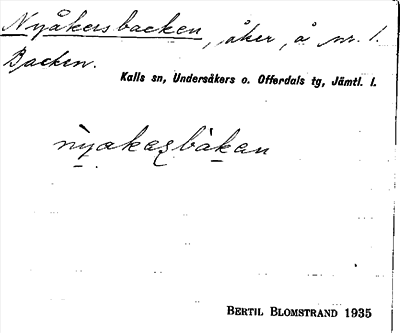 Nyåkersbacken, åker, å nr. 1.
Backen.
Kalls sn, Undersåkers o. Offerdals tg, Jämtl. l.
nyakesbàkan
BERTIL BLOMSTRAND 1935